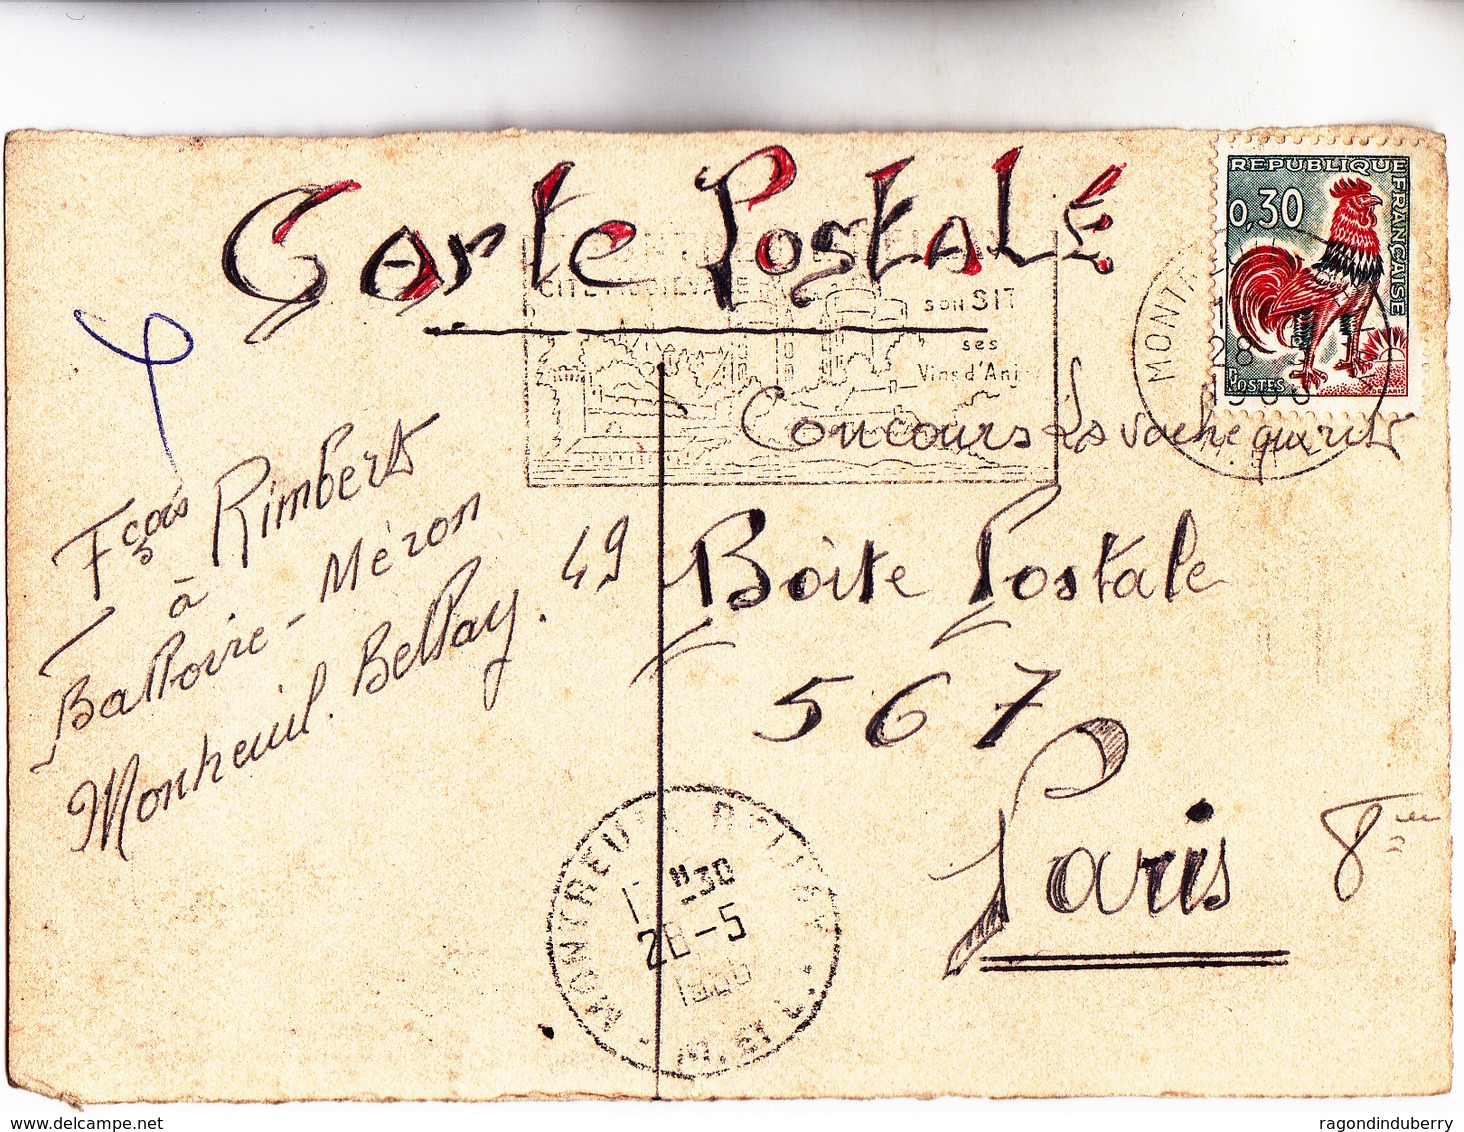 Carte Postale
REPUBLIQUE FRANÇAISE
0,30
POSTES
CITE MEDIEVALE
SON SIT
ses
Vins d'Anj
MONT
28
Concours La vache qui rit
Fçois Rimbert
à
Balloire - Méron
Montreuil. Bellay. 49
Boite Postale
567
Paris 8me
MONTREUIL BELLAY
H 30
28-5
M. ET L.
ragondinduberry